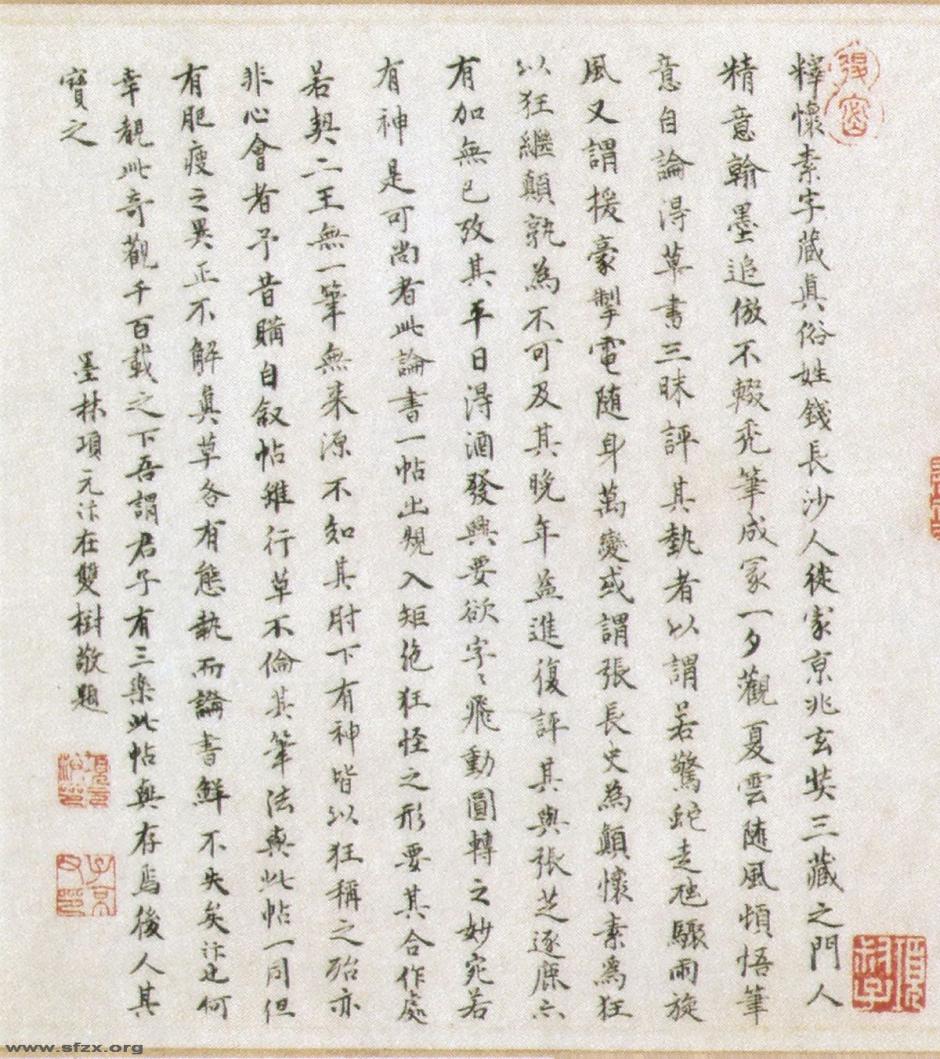 釋懷素字藏真俗姓錢長沙人徙家京兆玄奘三藏之門人
精意翰墨追倣不輟秃筆成冢一夕觀夏雲随風頓悟筆
意自論得草書三昧評其執者以謂若驚蛇走虺驟雨旋
風又謂援豪掣電随身萬變或謂張長史為顛懷素為狂
以狂繼顛孰為不可及其晚年益進復評其與張芝逐鹿亦
有加無已攷其平日得酒發興要欲字〻飛動圓轉之妙宛若
有神是可尚者此論書一帖出規入矩絶狂怪之形要其合作處
若契二王無一筆無来源不知其肘下有神皆以狂稱之殆亦
非心會者予昔購自叙帖雖行草不倫其筆法與此帖一同但
有肥瘦之異正不解真草各有態執而論書鮮不失矣汴也何
幸覩此奇觀千百載之下吾謂君子有三樂此帖與存焉後人其
寶之
墨林項元汴在雙樹敬題
項叔子
子京父印
www.sfzx.org